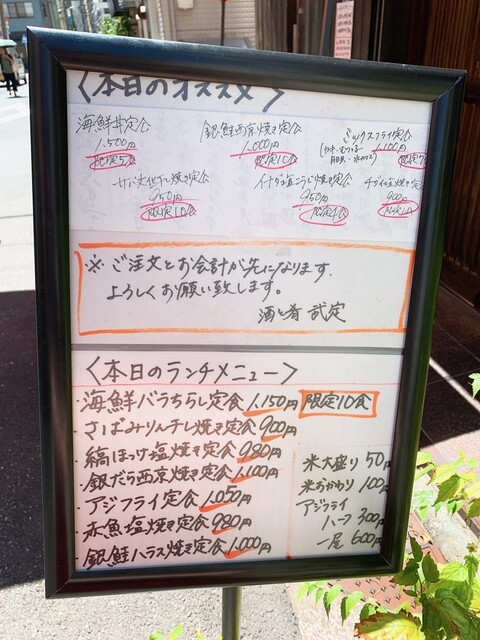 <本日のオススメ>
海鮮丼定食
1,500円
限定5食
銀鮭西京焼き定食
1,000円
限定10食
ミックスフライ定食
1,100円
限定
サバ文化干し焼き定食
950円
限定10食
イナダ塩こうじ焼き定食
950円
限定4食
チダイ塩焼き定食
900円
※ ご注文とお会計が先になります。
よろしくお願い致します。
酒と肴 武定
<本日のランチメニュー>
・海鮮バラちらし定食 1,150円 限定10食
・さばみりん干し焼き定食 900円
・縞ほっけ塩焼き定食 980円
・銀だら西京焼き定食 1,100円
・アジフライ定食 1,050円
・赤魚塩焼き定食 980円
・銀鮭ハラス焼き定食 1,000円
米大盛り 50円
米おかわり 100円
アジフライ
ハーフ 300円
一尾 600円